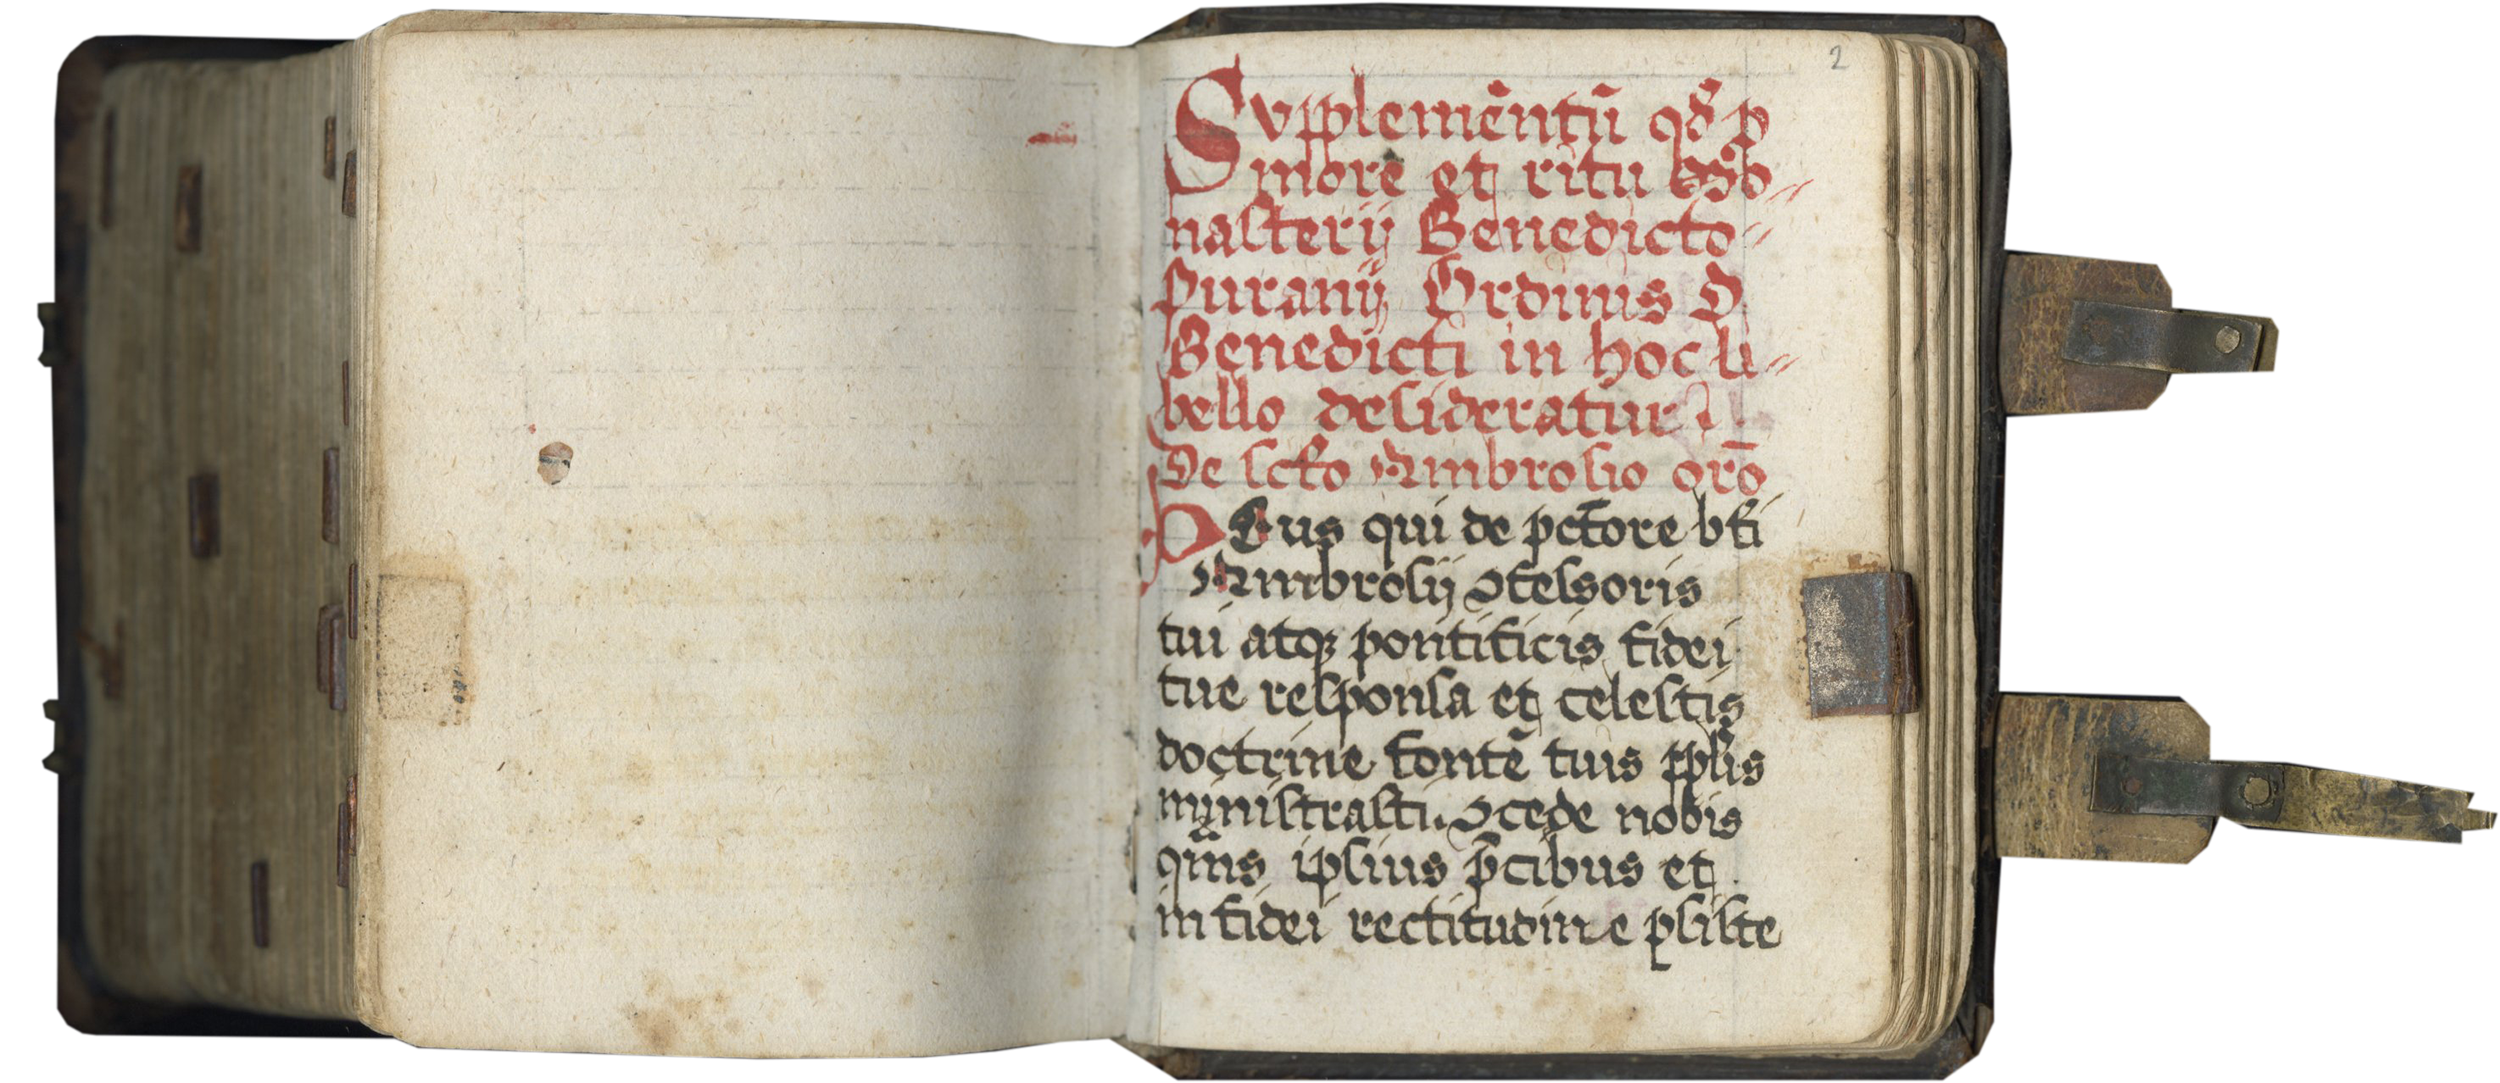 2
Svpplemētū qđ p
more et ritu Mo⸗
nasterij Benedicto⸗
puranij Ordinis D.
Benedicti in hoc li⸗
bello desideratur
De scto Ambrosio oro
DEus qui de pctore bti
Ambrosij ꝯfessoris
tui atqꝫ pontificis fidei
tue responsa et celestis
doctrine fontē tuis ppl'is
ministrasti. ꝯcede nobis
qms ipsius p̄cibus et
in fidei rectitudine psiste